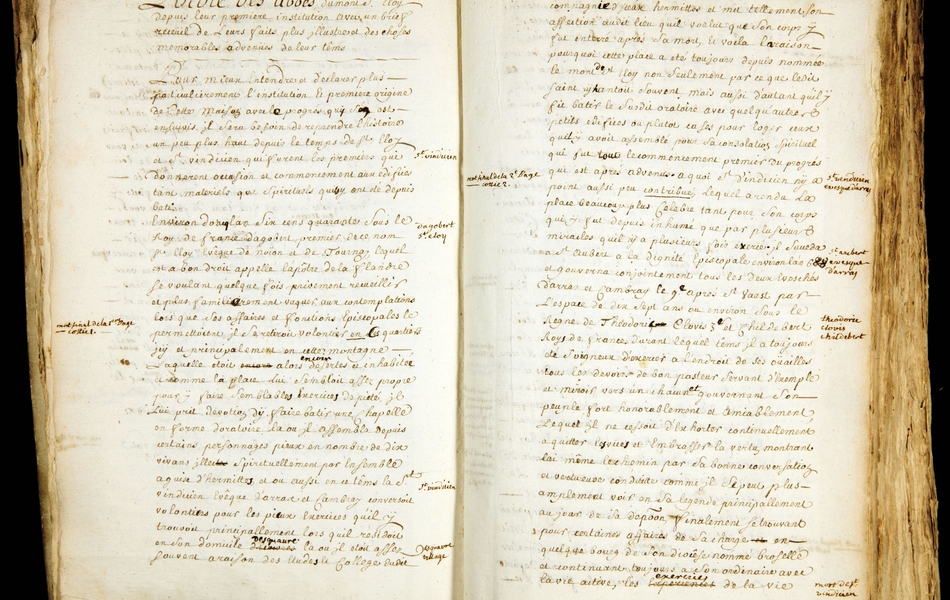 L'indice des abbés du mont St. Eloy
depuis leur premiere institution avec un brief
recueil de leurs faits plus illustres et des choses
memorables advenues de leur tems
Pour mieux entendre et declarer plus
particulierement l'institution et premiere origine
de cette maison avec le progrés qui s'en est
ensuivis, il sera besoin de reprendre l'histoire
un peu plus haut depuis le temps de St. Eloy
et St. vindicien qui furent les premiers que
donnerent occasion et commencement aux edifices
St. vindicien
tant materiels que spirituels qui y ont eté depuis
batis.
Environ don l'an six cens quarante sous le
Roy de france dagobert premier de ce nom
dagobert
St. eloy
St. Eloy evêque de noion et de Tournay lequel
est a bon droit appellé l'apôtre de la flandre
se voulant quelque fois prisement recueillir
et plus familierement vaquer aux contemplations
lors que ses affaires et fonctions Episcopales le
permettoient, il se retiroit volontier en ce quartier
mot final de la 1re Page
cottié 1.
icy et principalement en cette montagne
laquelle etoit encor alors deserte et inhabitée
et comme la place lui sembloit assez propre
pour y faire semblables exercices de pieté, il
lui prit devotion d'y faire batir une chapelle
en forme d'oratoire la ou il assembla depuis
certains personnages pieux en nombre de dix
vivans illec spirituellement par ensemble
a guise d'hermittes et ou aussi en ce tems la St.
vindicien evêque d'arras et Cambray conversoit
St. vindicien
volontiers pour les pieux exercices qu'il y
trouvoit principallement lors qu'il residoit
en son domicile desquavre la ou il etoit assez
desquavre
village
souvent a raison des etudes et College dudit
compagnie d'jeux hermittes et mit tellement son
affection audit lieu qu'il voelut que son corps y
fut enterré apres sa mort, et voela la raison
pourquoi cette place a eté toujours depuis nommée
le mont de St. Eloy non seulement par ce que ledit
saint y hantoit souvent mais aussi d'autant qu'il y
fit batir le susdit oratoire avec quelqu'autres
petits edifices ou plutot cases pour loger ceux
qu'il y avoit assemblé pour sa consolation spirituel
que fut tout le commencement premier du progrés
que est apres advenus a quoi St. vindicien n'y a
mot final de la 2e Page
cottié 2.
St. vindicien
evesque d'arras
point aussi peu contribué, lequel a rendu la
place beaucoup plus celebre tant pour son corps
que y fut depuis inhumé que par plusieurs
miracles qu'il y a plusieurs fois exercé. il succeda
a St. Aubert a la dignité Episcopale environ l'an
St. aubert
evesque
d'arras
et gouverna conjointement tous les deux Eveschés
d'arras et Cambray le 9e apres St. Vaast par
l'espace de dix sept ans ou environ sous le
Regne de Theodoric Clovis 3e et Childebert
theodoric
clovis
childebert
Roys de france durant lequel tems il a toujours
eté soigneux d'exercer a l'endroit de ses ouailles
tous les devoirs de bon pasteur servant d'exemple
et miroir vers un chacun et gouvernant son
peuple fort honorablement et amiablement
Lequel il ne cessoit d'exhorter continuellement
a quitter les vices et embrasser la vertu, montrant
lui même le chemin par sa bonne conversation
et vertueuse conduite comme il se peut plus
amplement voir en sa legende principallement
au jour de sa depoon finalement se trouvant
pour certaines affaires de sa charge en
quelque bourg de son diocése nommé broselle
et continuant toujours a son ordinaire avec
la vie active, les exercices de la vie
mort de St.
vindicien